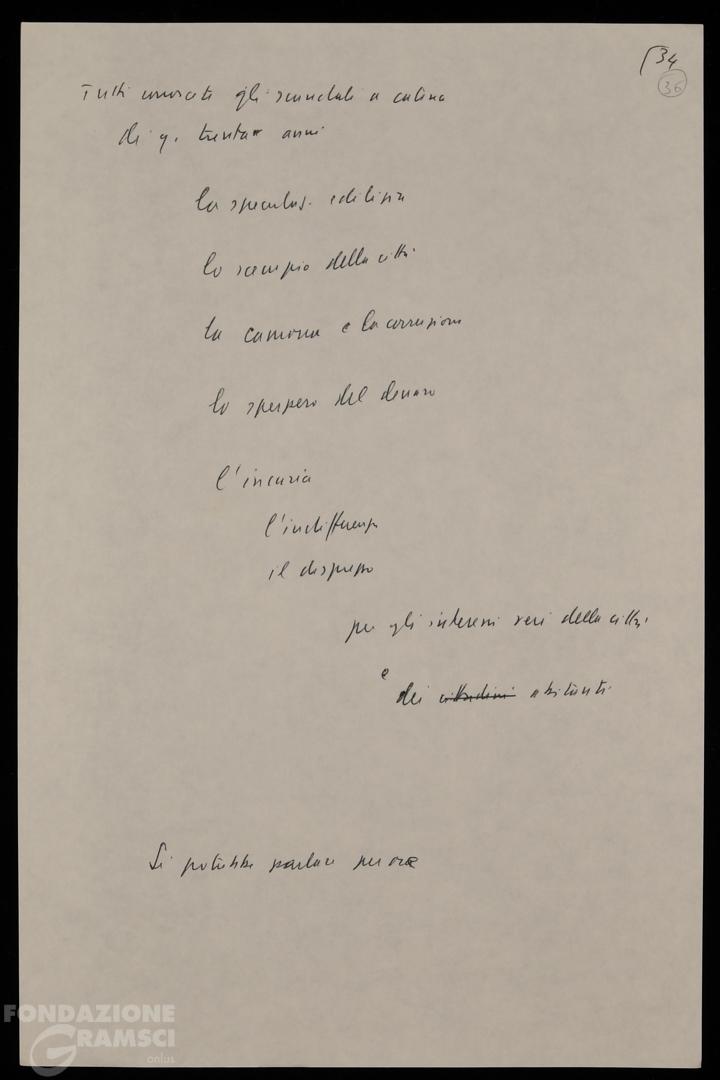 34
36
Tutti conoscete gli scandali a catena
di q. trenta anni
la speculaz. edilizia
lo scempio della città
la camorra e la corruzione
lo sperpero del denaro
l'incuria
l'indifferenza
il disprezzo
per gli interessi veri della città
e
dei cittadini abitanti
Si potrebbe parlare per ore
FONDAZIONE
GRAMSCI
onlus